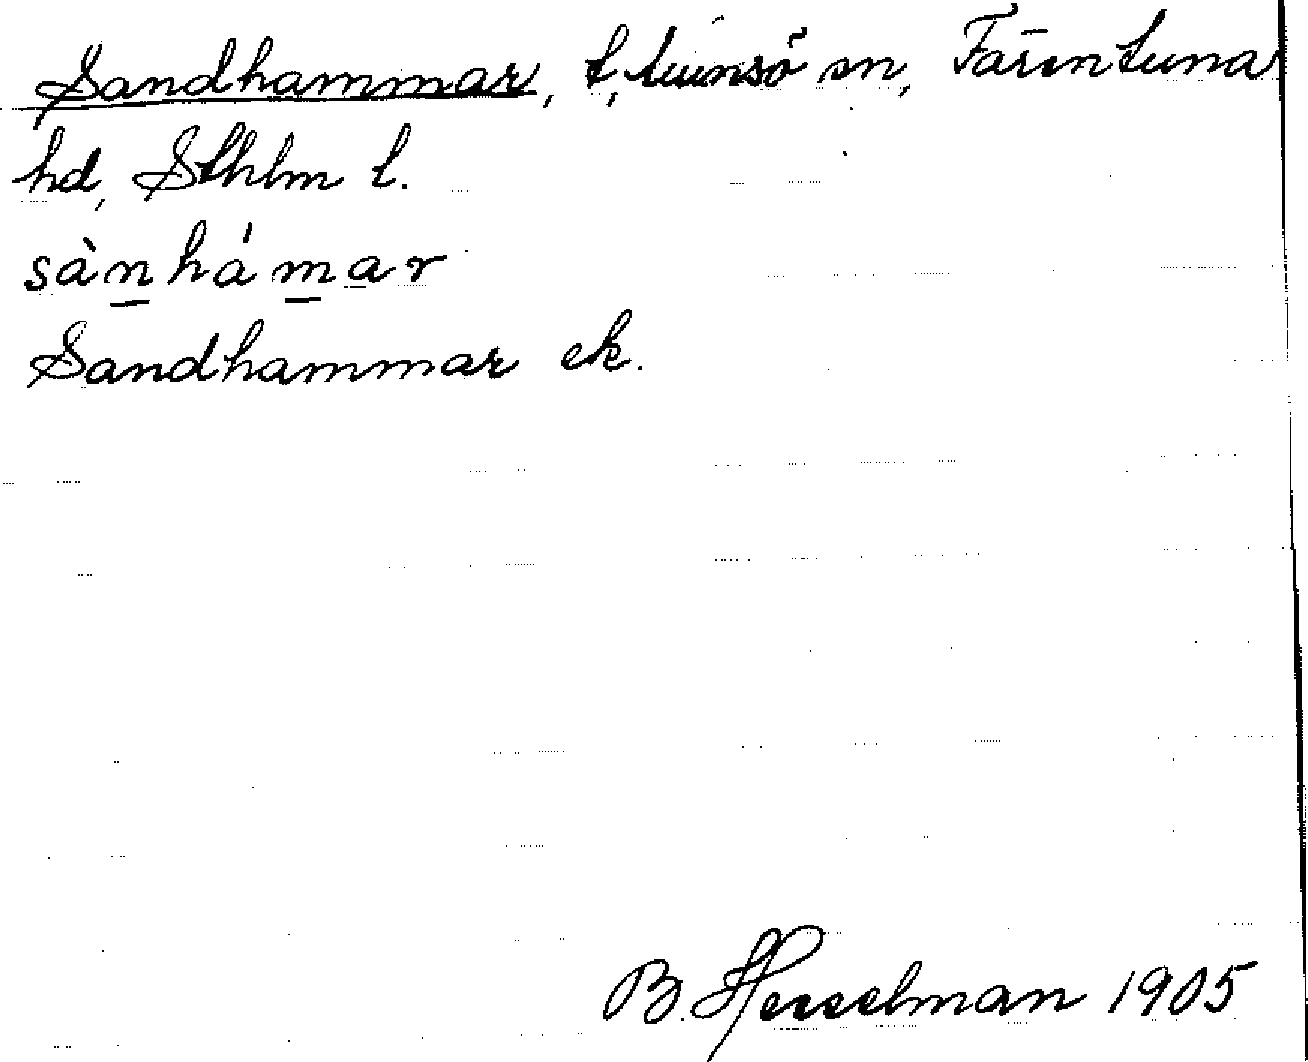 Sandhammar, t, Munsö sn, Färentuna
hd, Sthlm l.
sànhámar
Sandhammar ek.
B. Hesselman 1905